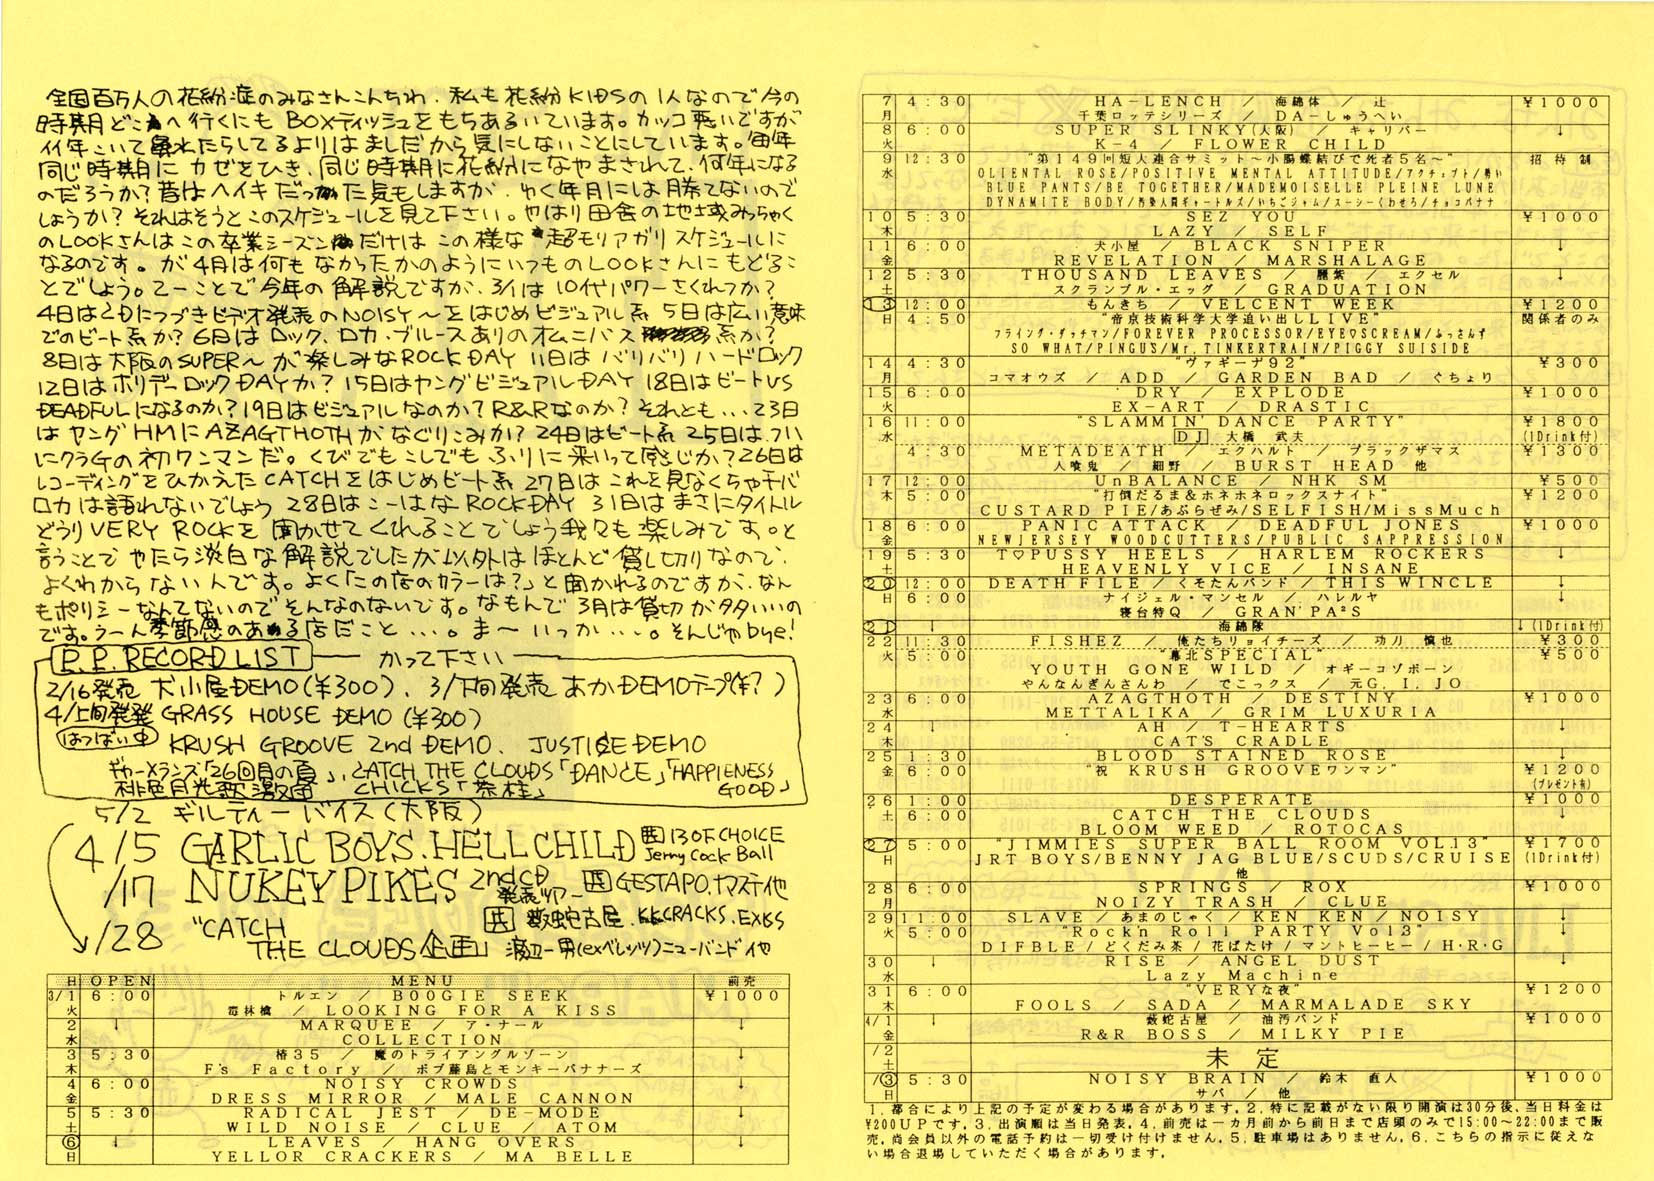 全国百万人の花粉症のみなさんこんちわ．私も花粉KIDSの1人なので今の
時期どこへ行くにもBOXティッシュをもちあるいています。カッコ悪いですが
イイ年こいて鼻水たらしてるよりはましだから気にしないことにしています。毎年
同じ時期にカゼをひき、同じ時期に花粉になやまされて、何年になる
のだろうか？昔はヘイキだった気もしますが、ゆく年月には勝てないので
しょうか？それはそうとこのスケジュールを見て下さい。やはり田舎の地域みっちゃく
のLOOKさんはこの卒業シーズンだけはこの様な超モリアガリスケジュールに
なるのです。が4月は何もなかったかのようにいつものLOOKさんにもどるこ
とでしょう。てーことで今年の解説ですが、3/1は10代パワーさくれつか？
4日は2日につづきビデオ発表のNOISY〜をはじめビジュアル系 5日は広い意味
でのビート系か？6日はロック、ロカ・ブルースありのオムニバス系か？
8日は大阪のSUPER〜が楽しみなROCK DAY 11日はバリバリハードロック
12日はホリデーロックDAYか？15日はヤングビジュアルDAY 18日はビートVS
DEADFULになるのか？19日はビジュアルなのか？R&Rなのか？それとも...23日
はヤングHMにAZAGTHOTHがなぐりこみか？24日はビート系 25日は、つい
にクラGの初ワンマンだ。くびでもこしでもふりに来いって感じか？26日は
レコーディングをひかえたCATCHをはじめビート系 27日はこれを見なくちゃチバ
ロカは語れないでしょう 28日はこーはなROCK DAY 31日はまさにタイトル
どうりVERY ROCKを聞かせてくれることでしょう我々も楽しみです。と
言うことでやたら淡白な解説でしたが以外はほとんど貸し切りなので、
よくわからないんです。よく「この店のカラーは？」と聞かれるのですが、なん
もポリシーなんてないのでそんなのないです。なもんで3月は貸切が多いの
です。うーん季節感のある店だこと...。ま〜いっか...。そんじゃbye!
P.P. RECORD LIST かって下さい
2/16発売 犬小屋DEMO(¥300)、3/下旬発売 あかDEMOテープ(¥?)
4/上旬発発 GRASS HOUSE DEMO (¥300)
はつばい中 KRUSH GROOVE 2nd DEMO、JUSTICE DEMO
ギャーメランズ「26回目の夏」、CATCH THE CLOUDS「DANCE」「HAPPIENESS GOOD」
桃色月光歌激団 CHICKS「茶柱」
5/2 ギルティーバイス(大阪)
4/5 GARLIC BOYS. HELL CHILD 共 13 OF CHOICE Jerny Cock Ball
/17 NUKEY PIKES 2nd CD発売ツアー 共 GESTAPO.ナマステ他
/28 "CATCH THE CLOUDS企画" 共 藪蛇古屋.CRACKS.EXKS
渡辺一男(exベレッツ)ニューバンド他
日 OPEN MENU 前売
3/1 6:00 トルエン / BOOGIE SEEK ¥1000
火 毒林檎 / LOOKING FOR A KISS
2 ↓ MARQUEE / ア・ナール ↓
水 COLLECTION
3 5:30 椿35 / 魔のトライアングルゾーン ↓
木 F's Factory / ボブ藤島とモンキーバナナーズ
4 6:00 NOISY CROWDS ↓
金 DRESS MIRROR / MALE CANNON
5 5:30 RADICAL JEST / DE-MODE ↓
土 WILD NOISE / CLUE / ATOM
6 ↓ LEAVES / HANG OVERS ↓
日 YELLOR CRACKERS / MA BELLE
7 4:30 HA-LENCH / 海綿体 / 辻 ¥1000
月 千葉ロッテシリーズ / DA-しゅうへい
8 6:00 SUPER SLINKY(大阪) / キャリバー ↓
火 K-4 / FLOWER CHILD
9 12:30 "第149回短大連合サミット〜小腸蝶結びで死者5名〜" 招待制
水 OLIENTAL ROSE/POSITIVE MENTAL ATTITUDE/アクチュプト/勢い
BLUE PANTS/BE TOGETHER/MADEMOISELLE PLEINE LUNE
DYNAMITE BODY/汚染人間ギャートルズ/いちごジャム/スーシーくわせろ/チョコバナナ
10 5:30 SEZ YOU ¥1000
木 LAZY / SELF
11 6:00 犬小屋 / BLACK SNIPER ↓
金 REVELATION / MARSHALAGE
12 5:30 THOUSAND LEAVES / 麗紫 / エクセル ↓
土 スクランブル・エッグ / GRADUATION
13 12:00 もんきち / VELCENT WEEK ¥1200
日 4:50 "帝京技術科学大学追い出しLIVE" 関係者のみ
フライング・ダッチマン/FOREVER PROCESSOR/EYE♡SCREAM/ふっさんず
SO WHAT/PINGU'S/Mr.TINKERTRAIN/PIGGY SUISIDE
14 4:30 "ヴァギーナ92" ¥300
月 コマオウズ / ADD / GARDEN BAD / ぐちょり
15 6:00 DRY / EXPLODE ¥1000
火 EX-ART / DRASTIC
16 11:00 "SLAMMIN' DANCE PARTY" ¥1800
水 DJ 大橋 武夫 (1Drink付)
4:30 METADEATH / エクハルト / ブラックザマス ¥1300
人喰鬼 / 細野 / BURST HEAD 他
17 12:00 UnBALANCE / NHK SM ¥500
木 5:00 "打倒だるま&ホネホネロックスナイト" ¥1200
CUSTARD PIE/あぶらぜみ/SELFISH/MissMuch
18 6:00 PANIC ATTACK / DEADFUL JONES ¥1000
金 NEWJERSEY WOODCUTTERS/PUBLIC SAPPRESSION
19 5:30 T♡PUSSY HEELS / HARLEM ROCKERS ↓
土 HEAVENLY VICE / INSANE
20 12:00 DEATH FILE / くそたんバンド / THIS WINCLE ↓
日 6:00 ナイジェル・マンセル / ハレルヤ ↓
寝台特Q / GRAN'PA²S
21 ↓ 海綿隊 ↓(1Drink付)
22 11:30 FISHEZ / 俺たちリョイチーズ / 功刀 慎也 ¥300
火 5:00 "幕北SPECIAL" ¥500
YOUTH GONE WILD / オギーコゾボーン
やんなんぎんさんわ / でこックス / 元G.I.JO
23 6:00 AZAGTHOTH / DESTINY ¥1000
水 METTALIKA / GRIM LUXURIA
24 ↓ AH / T-HEARTS ↓
木 CAT'S CRADLE
25 1:30 BLOOD STAINED ROSE ↓
金 6:00 "祝 KRUSH GROOVEワンマン" ¥1200
(プレゼント有)
26 1:00 DESPERATE ¥1000
土 6:00 CATCH THE CLOUDS ↓
BLOOM WEED / ROTOCAS
27 5:00 "JIMMIES SUPER BALL ROOM VOL.13" ¥1700
日 JRT BOYS/BENNY JAG BLUE/SCUDS/CRUISE (1Drink付)
他
28 6:00 SPRINGS / ROX ¥1000
月 NOIZY TRASH / CLUE
29 11:00 SLAVE / あまのじゃく / KEN KEN / NOISY ↓
火 5:00 "Rock'n Roll PARTY Vol3" ↓
DIFBLE / どくだみ茶 / 花ばたけ / マントヒーヒー / H・R・G
30 ↓ RISE / ANGEL DUST ↓
水 Lazy Machine
31 6:00 "VERYな夜" ¥1200
木 FOOLS / SADA / MARMALADE SKY
4/1 ↓ 藪蛇古屋 / 油汚バンド ¥1000
金 R&R BOSS / MILKY PIE
/2 未定
土
/3 5:30 NOISY BRAIN / 鈴木 直人 ¥1000
日 サバ / 他
1.都合により上記の予定が変わる場合があります.2.特に記載がない限り開演は30分後、当日料金は
¥200UPです.3.出演順は当日発表.4.前売は一カ月前から前日まで店頭のみで15:00〜22:00まで販
売.尚会員以外の電話予約は一切受け付けません.5.駐車場はありません.6.こちらの指示に従えな
い場合退場していただく場合があります.